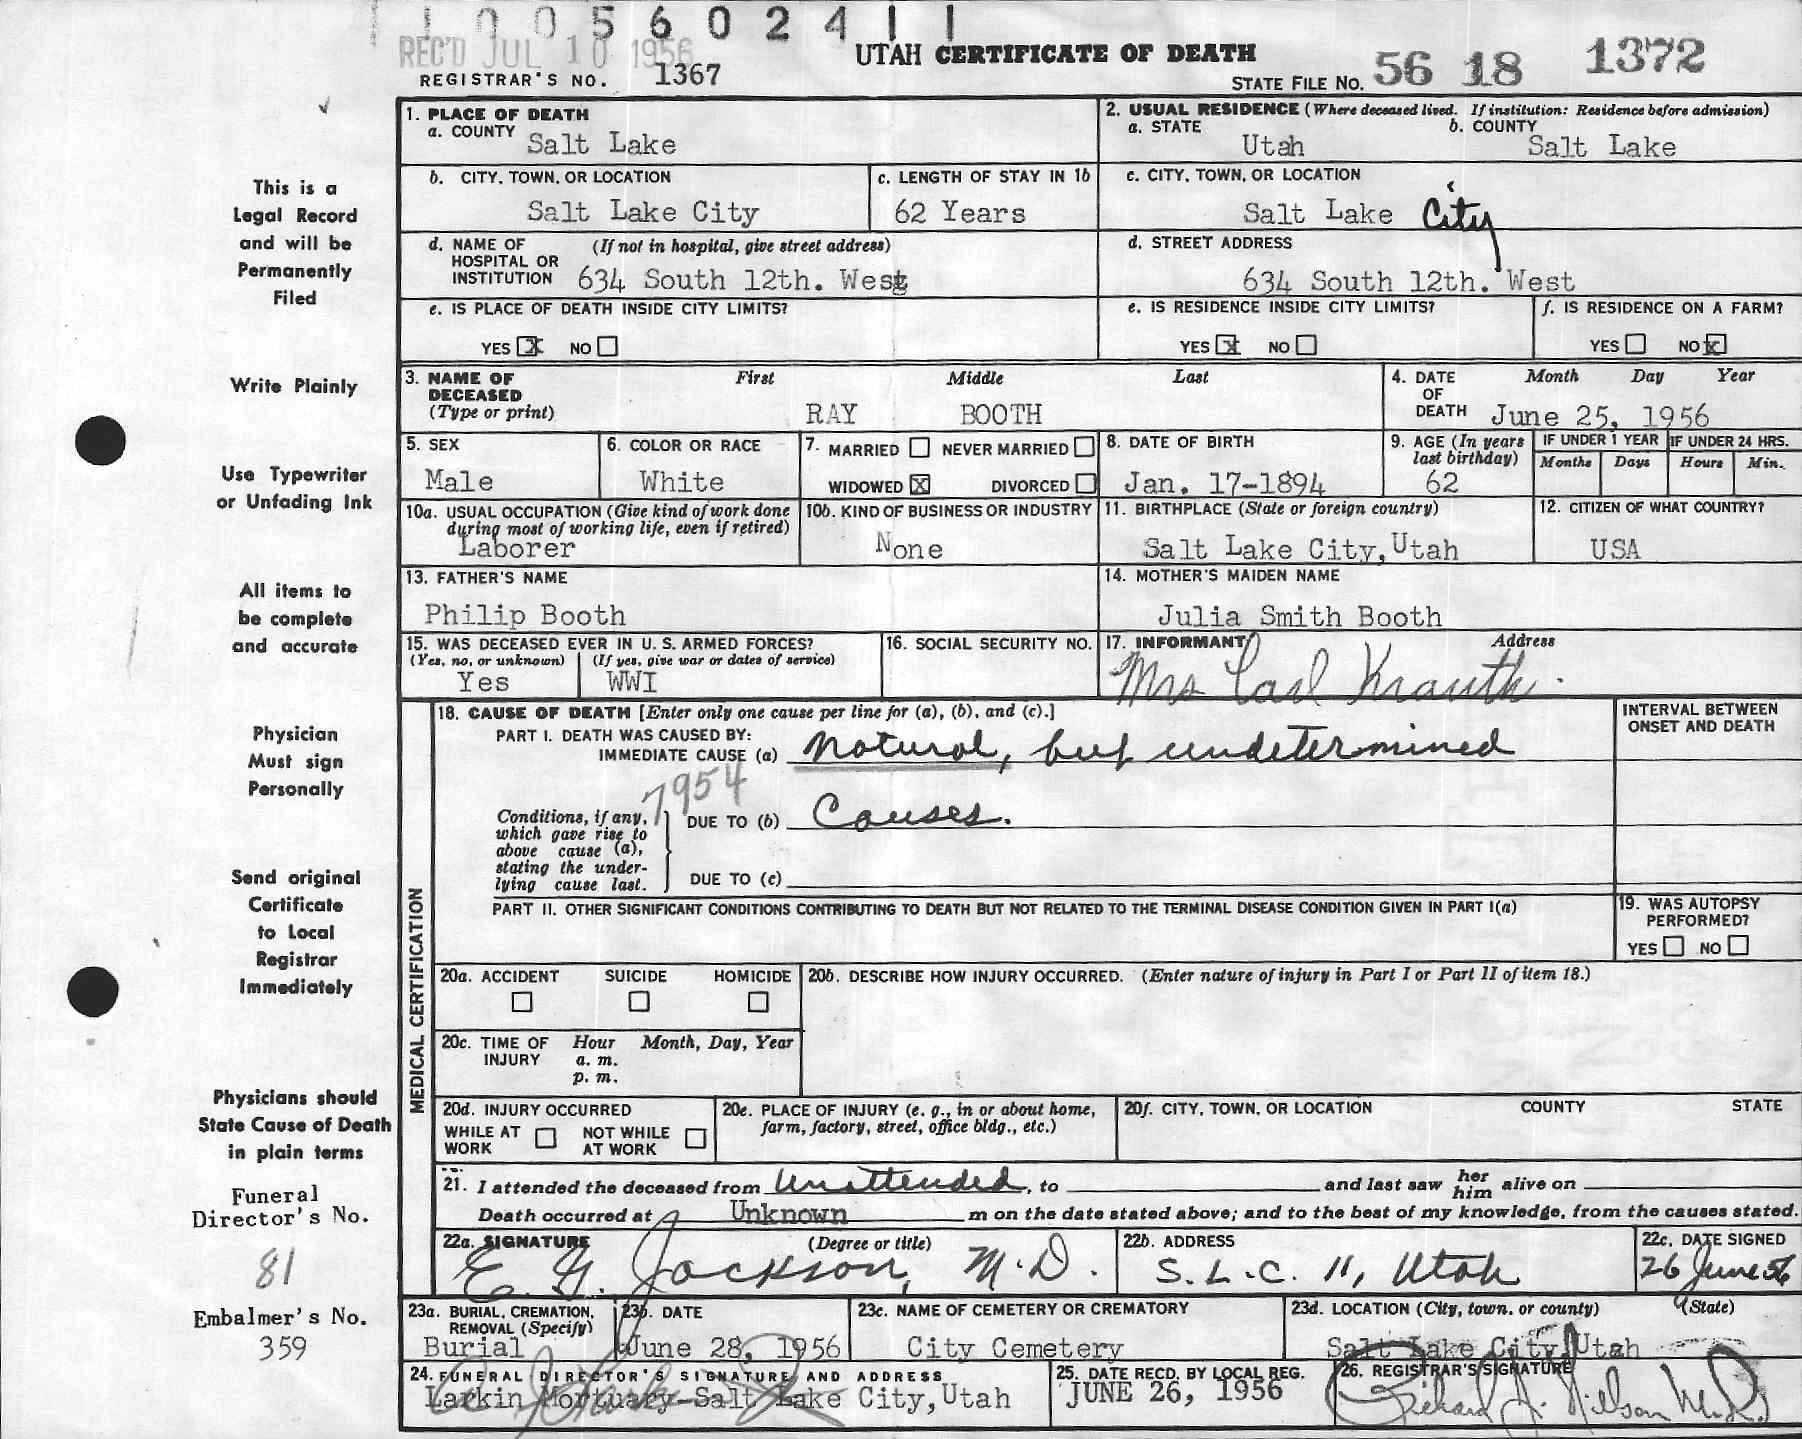 1005602411
REC'D JUL 10 1956
REGISTRAR'S NO. 1367
UTAH CERTIFICATE OF DEATH
STATE FILE NO. 56 18 1372
This is a
Legal Record
and will be
Permanently
Filed
Write Plainly
Use Typewriter
or Unfading Ink
All items to
be complete
and accurate
Physician
Must sign
Personally
Send original
Certificate
to Local
Registrar
Immediately
Physicians should
State Cause of Death
in plain terms
Funeral
Director's No.
81
Embalmer's No.
359
1. PLACE OF DEATH
a. COUNTY Salt Lake
2. USUAL RESIDENCE (Where deceased lived. If institution: Residence before admission)
a. STATE Utah b. COUNTY Salt Lake
b. CITY, TOWN, OR LOCATION Salt Lake City
c. LENGTH OF STAY IN 1b 62 Years
c. CITY, TOWN, OR LOCATION Salt Lake City
d. NAME OF HOSPITAL OR INSTITUTION (If not in hospital, give street address) 634 South 12th. West
d. STREET ADDRESS 634 South 12th. West
e. IS PLACE OF DEATH INSIDE CITY LIMITS?
YES X NO
e. IS RESIDENCE INSIDE CITY LIMITS?
YES X NO
f. IS RESIDENCE ON A FARM?
YES NO X
3. NAME OF DECEASED (Type or print) First Middle Last
RAY BOOTH
4. DATE OF DEATH Month Day Year
June 25, 1956
5. SEX Male
6. COLOR OR RACE White
7. MARRIED NEVER MARRIED
WIDOWED X DIVORCED
8. DATE OF BIRTH Jan. 17-1894
9. AGE (In years last birthday) 62
IF UNDER 1 YEAR Months Days
IF UNDER 24 HRS. Hours Min.
10a. USUAL OCCUPATION (Give kind of work done during most of working life, even if retired)
Laborer
10b. KIND OF BUSINESS OR INDUSTRY
None
11. BIRTHPLACE (State or foreign country)
Salt Lake City, Utah
12. CITIZEN OF WHAT COUNTRY?
USA
13. FATHER'S NAME
Philip Booth
14. MOTHER'S MAIDEN NAME
Julia Smith Booth
15. WAS DECEASED EVER IN U. S. ARMED FORCES?
(Yes, no, or unknown) (If yes, give war or dates of service)
Yes WWI
16. SOCIAL SECURITY NO.
17. INFORMANT Address
Mrs Carl Krauth.
MEDICAL CERTIFICATION
18. CAUSE OF DEATH [Enter only one cause per line for (a), (b), and (c).]
PART I. DEATH WAS CAUSED BY:
IMMEDIATE CAUSE (a) Natural, but undetermined
7954
Conditions, if any, which gave rise to above cause (a), stating the underlying cause last.
DUE TO (b) Causes.
DUE TO (c)
INTERVAL BETWEEN ONSET AND DEATH
PART II. OTHER SIGNIFICANT CONDITIONS CONTRIBUTING TO DEATH BUT NOT RELATED TO THE TERMINAL DISEASE CONDITION GIVEN IN PART I(a)
19. WAS AUTOPSY PERFORMED?
YES NO
20a. ACCIDENT SUICIDE HOMICIDE
20b. DESCRIBE HOW INJURY OCCURRED. (Enter nature of injury in Part I or Part II of item 18.)
20c. TIME OF INJURY Hour Month, Day, Year
a. m.
p. m.
20d. INJURY OCCURRED
WHILE AT WORK NOT WHILE AT WORK
20e. PLACE OF INJURY (e. g., in or about home, farm, factory, street, office bldg., etc.)
20f. CITY, TOWN, OR LOCATION COUNTY STATE
21. I attended the deceased from Unattended, to and last saw her him alive on
Death occurred at Unknown m on the date stated above; and to the best of my knowledge, from the causes stated.
22a. SIGNATURE (Degree or title)
E. G. Jackson, M.D.
22b. ADDRESS
S.L.C. 11, Utah
22c. DATE SIGNED
26 June 56
23a. BURIAL, CREMATION, REMOVAL (Specify)
Burial
23b. DATE
June 28, 1956
23c. NAME OF CEMETERY OR CREMATORY
City Cemetery
23d. LOCATION (City, town, or county) (State)
Salt Lake City, Utah
24. FUNERAL DIRECTOR'S SIGNATURE AND ADDRESS
Larkin Mortuary-Salt Lake City, Utah
25. DATE RECD. BY LOCAL REG.
JUNE 26, 1956
26. REGISTRAR'S SIGNATURE
Richard J. Nilson M.D.